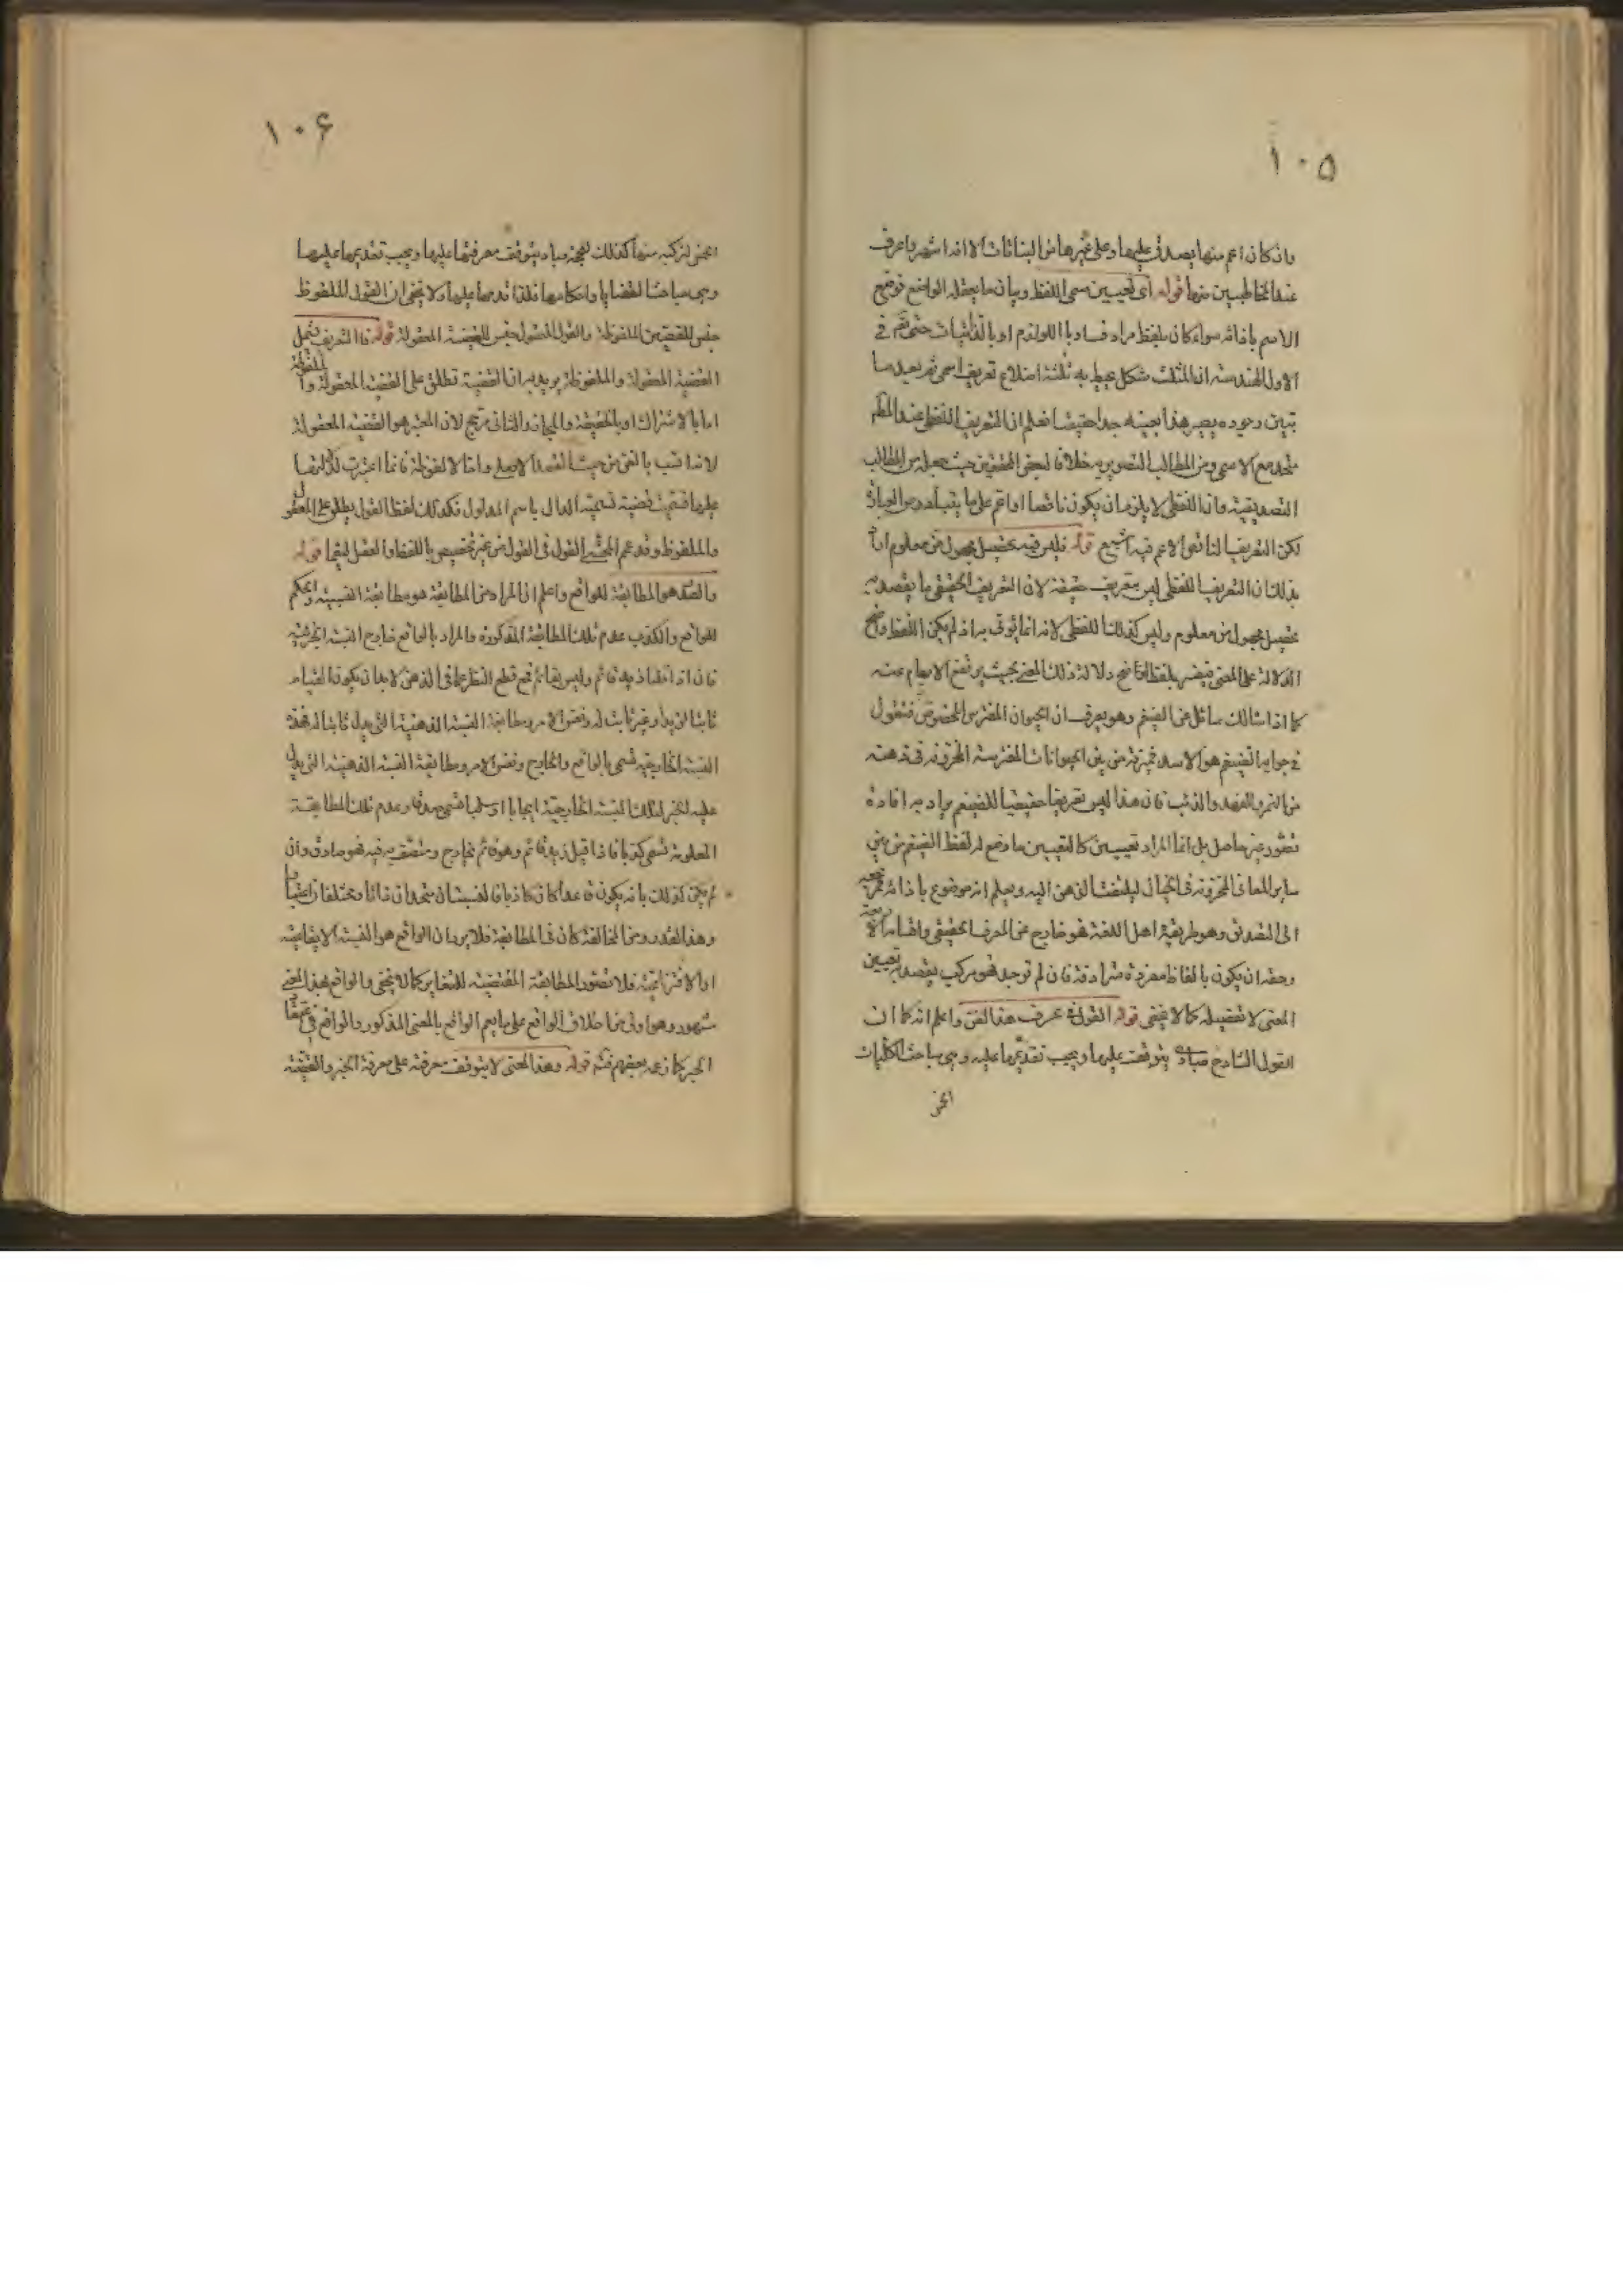 ١٠٥
وان كان اعم منها يصدق عليها وعلى غيرها من النباتات الا انه اشهر واعرف
عند المخاطبين منها قوله اى تعيين مسمى اللفظ وبيان ما يعقله الواضع فوضع
الاسم باذائه سواء كان بلفظ مرادف او باللوازم او بالذاتيات حتى في
الاول الهندسة ان المثلث شكل يحيط به ثلثة اضلاع تعريف اسمى ثم بعد ما
تبين وجوده يصير هذا بعينه حدا حقيقيا فعلم ان التعريف اللفظى عند
متحد مع الاسمى ومن المطالب التصورية خلافا لبعض المحققين حيث جعله من المطالب
التصديقية وان اللفظى لا يلزم ان يكون ناقصا او اعم على ما يتبادر من العبارة
لكن التعريف الناقص الاعم فيه اشيع قوله فليس فيه تحصيل مجهول من معلوم اراد
بذلك ان التعريف اللفظى ليس تعريف حقيقة لان التعريف الحقيقى ما يقصد به
تحصيل مجهول من معلوم وليس كذلك اللفظى لانه انما يؤتى به اذ لم يكن اللفظ واضح
الدلالة على المعنى فيفسر بلفظ اوضح دلالة ذلك المعنى بحيث يرتفع الابهام عنه
كما اذا سالك سائل عن الضيغم وهو يعرف ان الحيوان المفترس المخصوص فتقول
في جوابه الضيغم هو الاسد فميزته من بين الحيوانات المفترسة المخزونة في ذهنه
من النمر والفهد والذئب فان هذا ليس تعريفا حقيقيا للضيغم يراد به افادة
تصور غير حاصل بل انما المراد تعيين كالتعيين ما وضع له لفظ الضيغم من بين
ساير المعانى المخزونة فى الخيال ليلتفت الذهن اليه ويعلم انه موضوع باذائه فمرجعه
الى التصديق وهو طريقة اهل اللغة فهو خارج عن المعرف الحقيقى واقسامه الاربعة
وحقه ان يكون بالفاظ مفردة مترادفة فان لم توجد فهو مركب يقصد به تعيين
المعنى لا تفصيله كما لا يخفى قوله القول فى عرف هذا الفن واعلم انه كما ان
القول الشارح مباد يتوقف عليها ويجب تقديمها عليه وهى مباحث الكليات
الخمس
١٠۶
الخمس لتركبه منها كذلك للحجة مباد يتوقف معرفتها عليها ويجب تقديمها عليها
وهى مباحث القضايا واحكامها فلذا قدمها عليها ولا يخفى ان القول الملفوظ
جنس للقضية الملفوظة والقول المعقول جنس للقضية المعقولة قوله فالتعريف يشمل
القضية المعقولة والملفوظة يريد به ان القضية تطلق على القضية المعقولة والملفوظة
اما بالاشتراك او بالحقيقة والمجاز والثانى مرجح لان المعتبر هو القضية المعقولة
لانه انسب بالفن من حيث القصد الاصلى واما الملفوظة فانما اعتبرت لدلالتها
عليها فسميت قضية تسمية الدال باسم المدلول فكذلك لفظ القول يطلق على المعقول
والملفوظ وقد عمم المحشى القول فى القول من غير تخصيص باللفظ والعقل ليتم قوله
والصدق هو المطابقة للواقع واعلم ان المراد من المطابقة هو مطابقة النسبة الحكمية
للواقع والكذب عدم تلك المطابقة المذكورة والمراد بالواقع خارج النسبة الخبرية
فان اذا قلنا زيد قائم وليس بقائم فمع قطع النظر عما فى الذهن لا بد ان يكون القيام
ثابتا لزيد او غير ثابت له ونفس الامر ومطابقة النسبة الذهنية التى يدل ثابتا له فهذه
النسبة الخارجية تسمى بالواقع والخارج ونفس الامر ومطابقة النسبة الذهنية التى يدل
عليه الخبر لتلك النسبة الخارجية ايجابا او سلبا تسمى صدقا وعدم تلك المطابقة
المعلومة تسمى كذبا فاذا قيل زيد قائم وهو قائم فى الخارج ومتصف به فهو صادق وان
لم يكن كذلك بانه يكون قاعدا كان كاذبا فالنسبتان متحدان ذاتا ومختلفان اعتبارا
وهذا القدر من المخالفة كان فى المطابقة فلا يرد ان الواقع هو النسبة الايقاعية
او الانتزاعية فلا تتصور المطابقة المقتضية للتغاير كما لا يخفى والواقع بهذا المعنى
مشهور وهو اولى من اطلاق الواقع على ما يعم الواقع بالمعنى المذكور والواقع فى
الخبر كما زعمه بعضهم فتم قوله وهذا المعنى لا يتوقف معرفته على معرفة الخبر والقضية